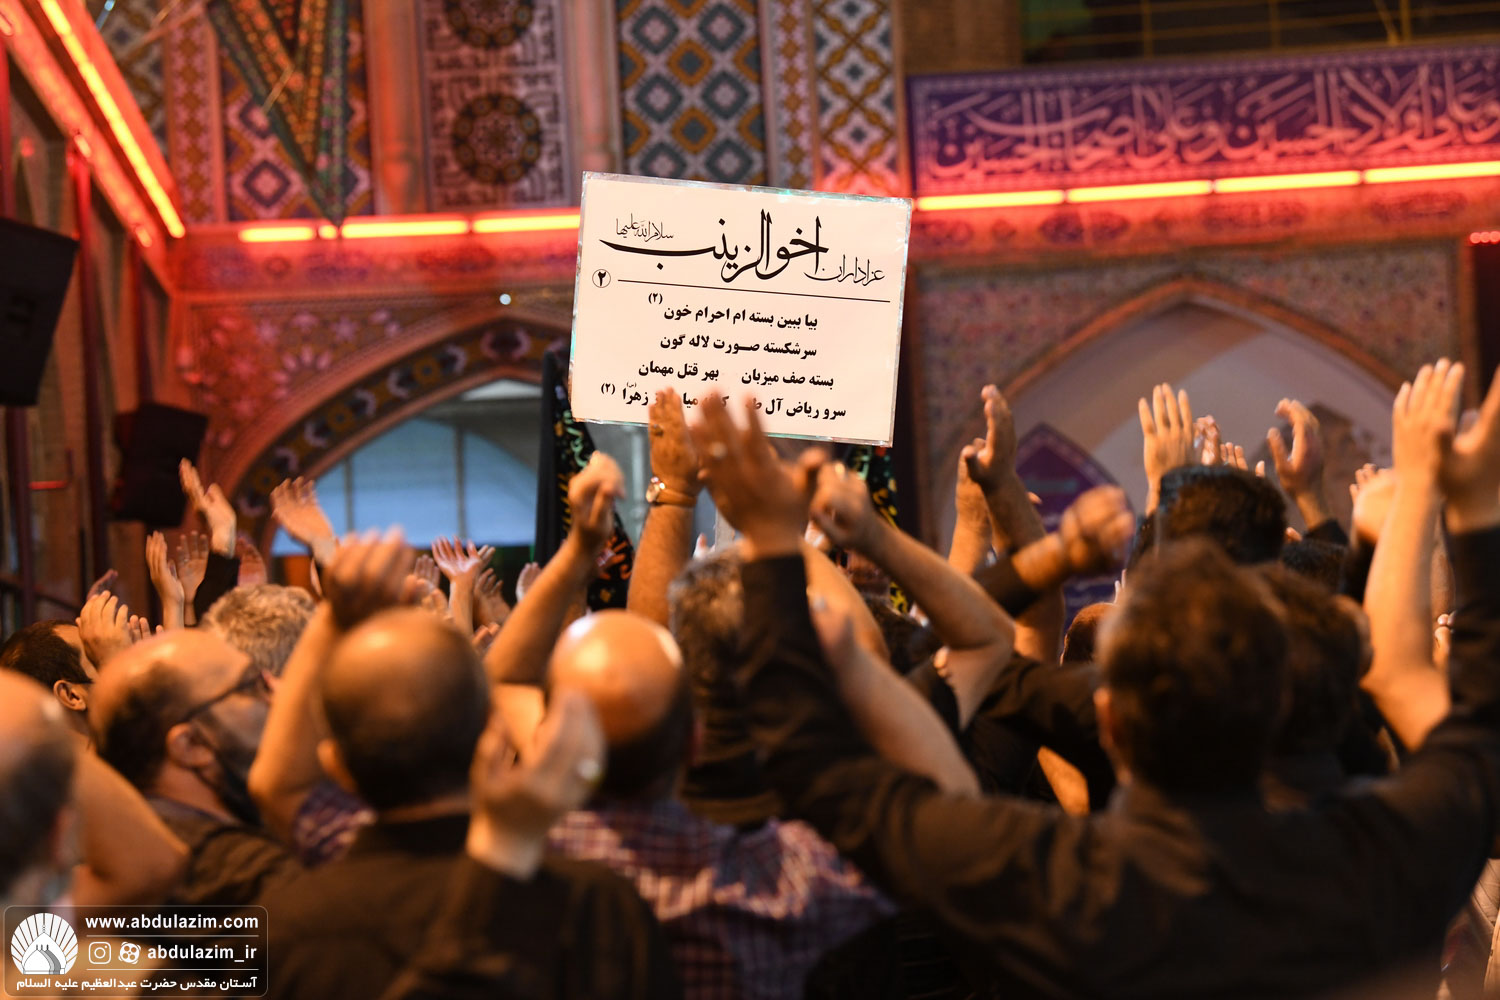 وعلی اولاد الحسین وعلی اصحاب الحسین
عزاداران اخوالزینب سلام الله علیها
۲
بیا ببین بسته ام احرام خون (۲)
سرشکسته صورت لاله گون
بسته صف میزبان بهر قتل مهمان
سرو ریاض آل زهرا (س) (۲)
www.abdulazim.com
abdulazim_ir
آستان مقدس حضرت عبدالعظیم علیه السلام